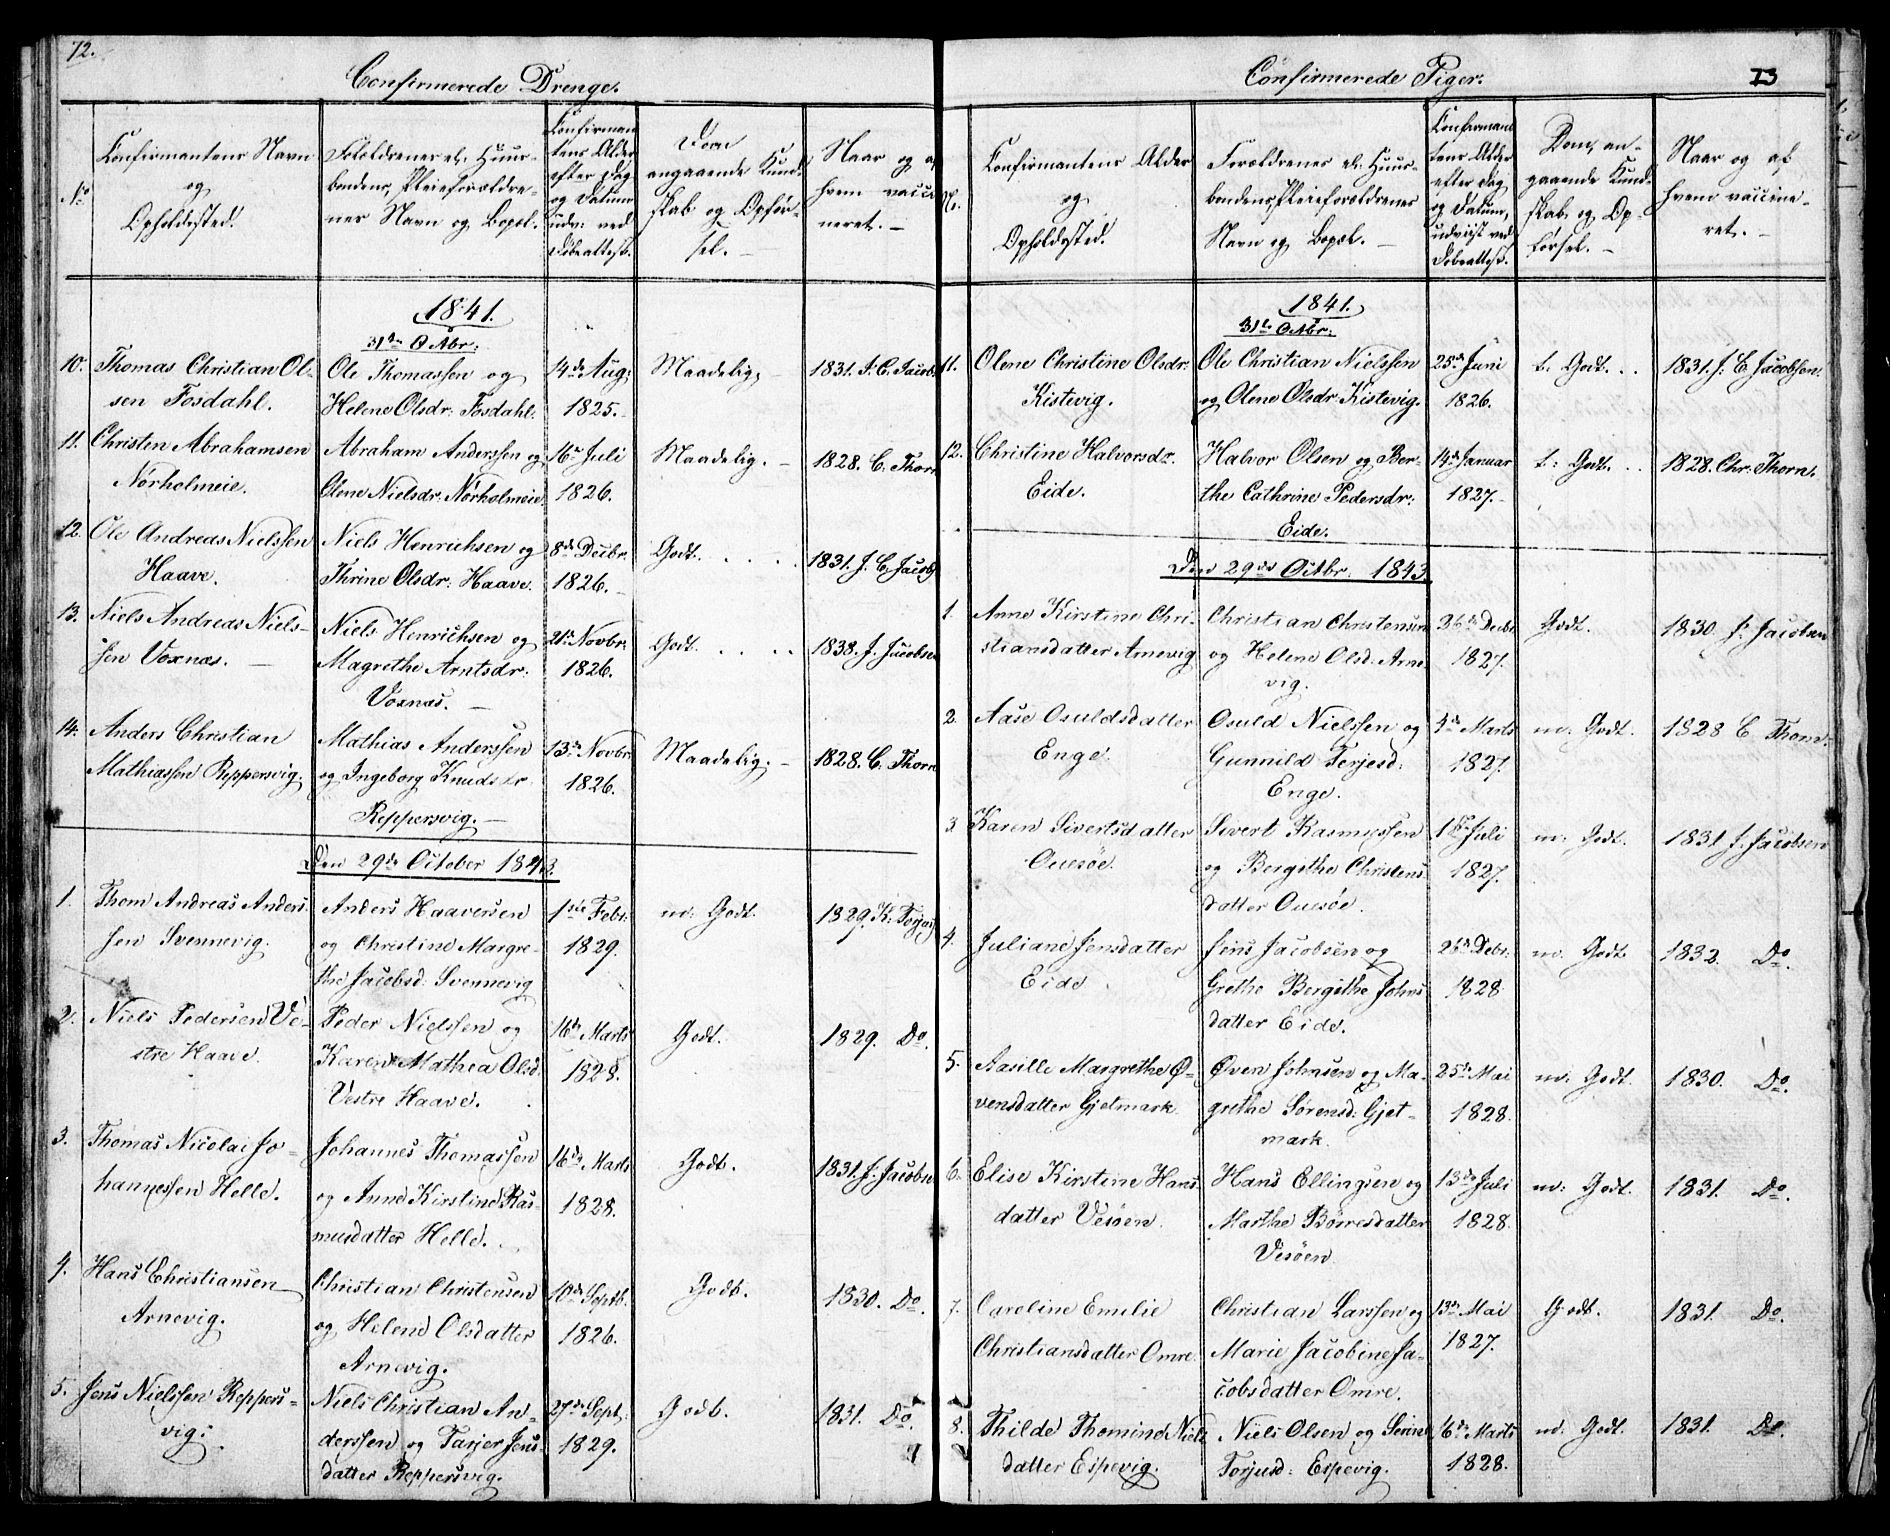 72.
Confirmerede Drenge.
No
Confirmantens Navn
og
Opholdssted.
Forældrenes el: Huus-
bondens, Pleieforældre-
nes Navn og Bopæl.
Confirman
tens Alder
efter Dag
og Datum
udv: ved
Døbeattest.
Dom
angaaende Kund-
skab og Opfør-
sel. –
Naar og af
hvem vacci
neret. –
1841.
31te Octbr:
10. Thomas Christian Ol-
sen Fosdahl.
Ole Thomassen og
Helene Olsdr: Fosdahl.
14de Aug:
1825. –
Maadelig. –
1831. J. C. Jacobs
11. Christen Abrahamsen
Nørholmeie.
Abraham Anderssen og
Olene Nielsdr: Nørholmeie
16de Juli
1826.
Maadelig. –
1828. C. Thorn
12. Ole Andreas Nielssen
Haave.
Niels Henrichsen og
Thrine Olsdr: Haave.
8de Decbr.
1826. –
Godt. . . . .
1831. J. C. Jacobs
13. Niels Andreas Niels-
sen Voxnæs. –
Niels Henrichsen og
Magrethe Arntsdr:
Voxnæs. –
21de Novbr:
1826.
Godt. . . . .
1838. J. Jacobsen
14. Anders Christian
Mathiassen Reppersvig.
Mathias Anderssen
og Ingeborg Knudsdr
Reppersvig. –
13de Novbr
1826.
Maadelig. –
1828. C. Thorn
Den 29de October 1843.
1. Thom Andreas Anders
sen Svennevig.
Anders Haaversen
og Christine Margre-
the Jacobsd: Svennevig
1ste Febr:
1829.
m: Godt.
1829. K. Torjus
2. Niels Pedersen Ve-
stre Haave.
Peder Nielssen og
Karen Mathea Olsd:
Vestre Haave.
16de Marts
1828.
Godt.
1829. Do.
3. Thomas Nicolai Jo-
hannessen Helle.
Johannes Thomassen
og Anne Kirstine Ras-
musdatter Helle.
16de Marts
1828.
Godt.
1831. J. Jacobsen
4. Hans Christiansen
Arnevig.
Christian Christensen
og Helene Olsdatter
Arnevig.
10de Septb.
1826.
Godt.
1830. Do.
5. Jens Nielssen Reppers-
vig.
Niels Christian An-
derssen og Tarjer Jens
datter Reppersvig.
27de Sept:
1829.
Godt.
1831. Do.
Confirmerede Piger.
73
No.
Confirmantens Alder
og
Opholdssted.
Forældrenes el: Huus-
bondens, Pleieforældrenes
Navn og Bopæl. –
Confirmant
tens Alder
efter Dag
og Datum,
udviist ved
Døbeattest.
Dom, an-
gaaende Kund-
skab og Op-
førsel. –
Naar og af
hvem vaccine-
ret. –
1841.
31te Octbr:
11. Olene Christine Olsdr.
Kistevig.
Ole Christian Nielssen
og Olene Olsdr: Kistevig.
25de Juni
1826.
t: Godt. . .
1831. J. C. Jacobsen.
12. Christine Halvorsdr.
Eide.
Halvor Olsen og Ber-
the Cathrine Pedersdr:
Eide.
14de Januar
1827. –
t: Godt. . .
1828. Chr. Thorn.
Den 29de Octbr: 1843.
1. Anne Kirstine Chri-
stiansdatter Arnevig
Christian Christensen
og Helene Olsd: Arne
vig.
Decbr.
1827.
Godt.
1830. J. Jacobsen
2. Aase Osuldsdatter
Enge.
Osuld Nielssen og
Gunnild Terjesd:
Enge.
4de Marts
1827.
m: Godt.
1828 C. Thorn.
3 Karen Sivertsdatter
Ouesøe.
Sivert Rasmussen
og Bergithe Christens
datter Ouesøe.
Juli
1827.
m: Godt.
1831 J. Jacobsen
4. Juliane Jensdatter
Eide.
Jens Jacobsen og
Grethe Bergithe Johns
datter Eide.
26de Debr.
1828
m: Godt.
1832. Do.
5. Aasille Margrethe Ø-
vensdatter Gjetmark.
Øven Johnsen og Ma-
grethe Sørensd: Gjet-
mark.
25de Mai
1828.
m: Godt.
1830. Do.
6. Elise Kirstine Hans
datter Vesøen.
Hans Ellingsen og
Marthe Børresdatter
Vesøen.
13de Juli
1828.
m: Godt.
1831. Do.
7. Caroline Emilie
Christiansdatter Omre.
Christian Larssen og
Marie Jacobine Ja-
cobsdatter Omre.
13de Mai
1827.
Godt.
1831. Do.
8. Thilde Thomine Niels
datter Espevig.
Niels Olsen og Serine
Torjusd: Espevig.
16de Marts
1828.
m: Godt.
1831. Do.